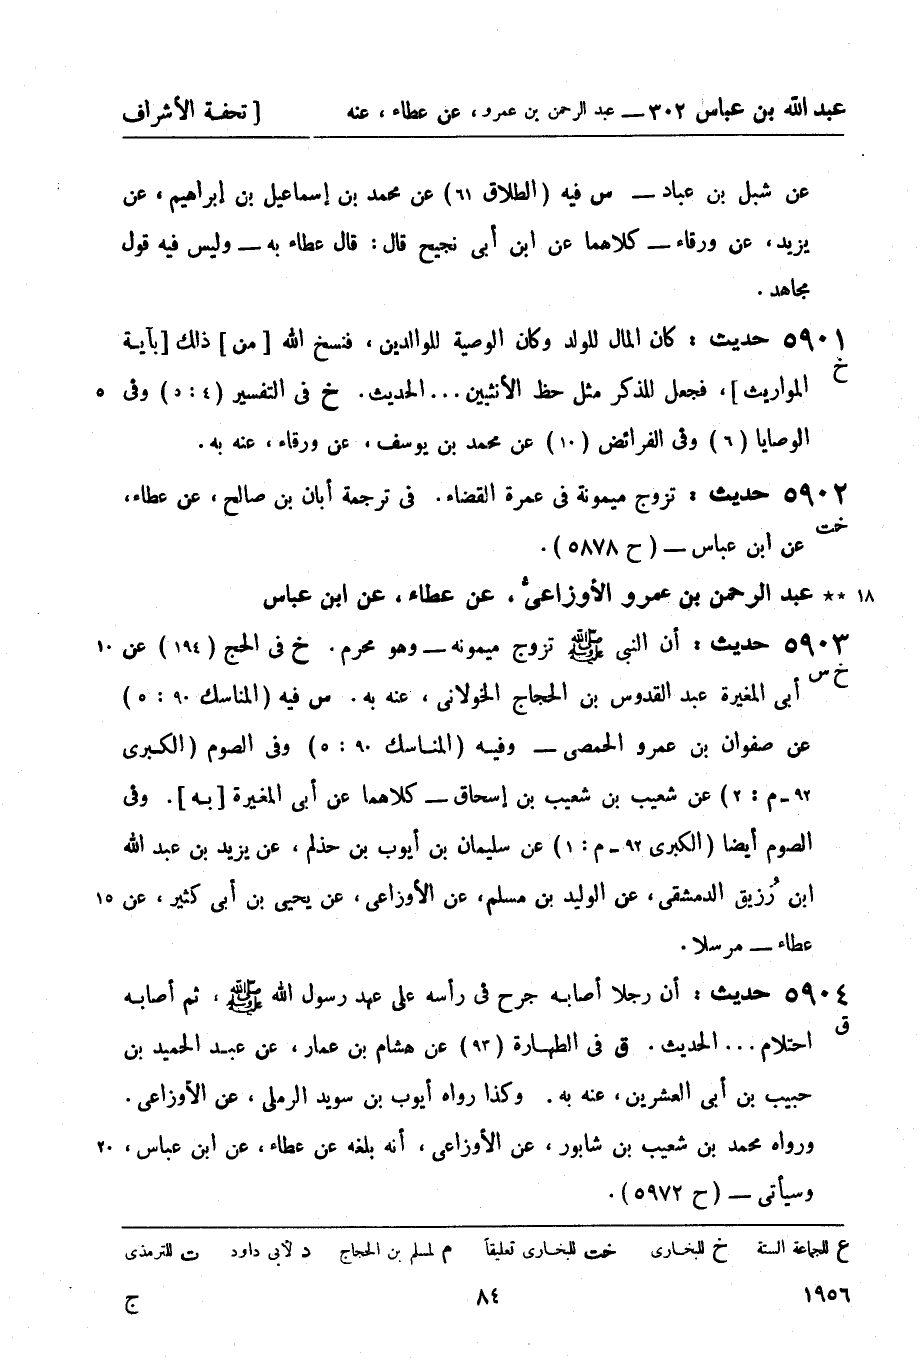 عبد الله بن عباس ٣٠٢ — عبد الرحمن بن عمرو ، عن عطاء ، عنه [ تحفة الأشراف
عن شبل بن عباد — س فيه (الطلاق ٦١) عن محمد بن إسماعيل بن إبراهيم ، عن
يزيد ، عن ورقاء — كلاهما عن ابن أبى نجيح قال : قال عطاء به — وليس فيه قول
مجاهد .
٥٩٠١ حديث : كان المال للولد وكان الوصية للوالدين ، فنسخ الله [ من ] ذلك [ بآية
خ المواريث ] ، فجعل للذكر مثل حظ الأنثيين ... الحديث . خ فى التفسير (٤ : ٥) وفى ٥
الوصايا (٦) وفى الفرائض (١٠) عن محمد بن يوسف ، عن ورقاء ، عنه به .
٥٩٠٢ حديث : تزوج ميمونة فى عمرة القضاء . فى ترجمة أبان بن صالح ، عن عطاء ،
خت عن ابن عباس — (ح ٥٨٧٨) .
١٨ ** عبد الرحمن بن عمرو الأوزاعىُّ ، عن عطاء ، عن ابن عباس
٥٩٠٣ حديث : أن النبى ﷺ تزوج ميمونه — وهو محرم . خ فى الحج (١٩٤) عن ١٠
خ س أبى المغيرة عبد القدوس بن الحجاج الخولانى ، عنه به . س فيه (المناسك ٩٠ : ٥)
عن صفوان بن عمرو الحمصى — وفيه (المناسك ٩٠ : ٥) وفى الصوم (الكبرى
٩٢ - م : ٢) عن شعيب بن شعيب بن إسحاق — كلاهما عن أبى المغيرة [ به ] . وفى
الصوم أيضا (الكبرى ٩٢ - م : ١) عن سليمان بن أيوب بن حذلم ، عن يزيد بن عبد الله
ابن رُزيق الدمشقى ، عن الوليد بن مسلم ، عن الأوزاعى ، عن يحيى بن أبى كثير ، عن ١٥
عطاء — مرسلا .
٥٩٠٤ حديث : أن رجلا أصابه جرح فى رأسه على عهد رسول الله ﷺ ، ثم أصابه
ق احتلام ... الحديث . ق فى الطهارة (٩٣) عن هشام بن عمار ، عن عبد الحميد بن
حبيب بن أبى العشرين ، عنه به . وكذا رواه أيوب بن سويد الرملى ، عن الأوزاعى .
ورواه محمد بن شعيب بن شابور ، عن الأوزاعى ، أنه بلغه عن عطاء ، عن ابن عباس ، ٢٠
وسيأتى — (ح ٥٩٧٢) .
ع للجماعة الستة خ للبخارى خت للبخارى تعليقاً م لمسلم بن الحجاج د لأبى داود ت للترمذى
١٩٥٦ ٨٤ ج